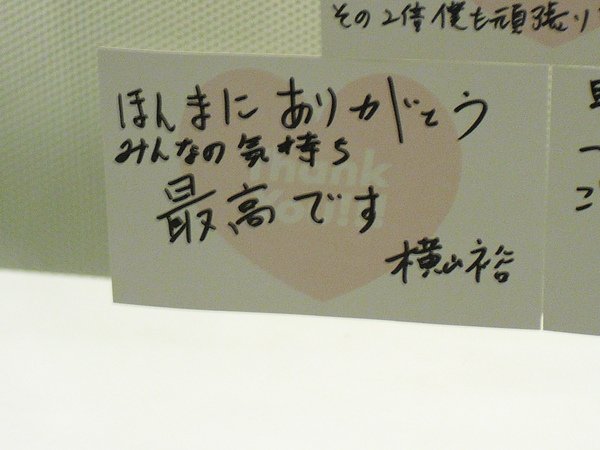 その2倍僕も頑張り
ほんまに ありがとう
みんなの気持ち
最高です
横山裕
Thank
You!!